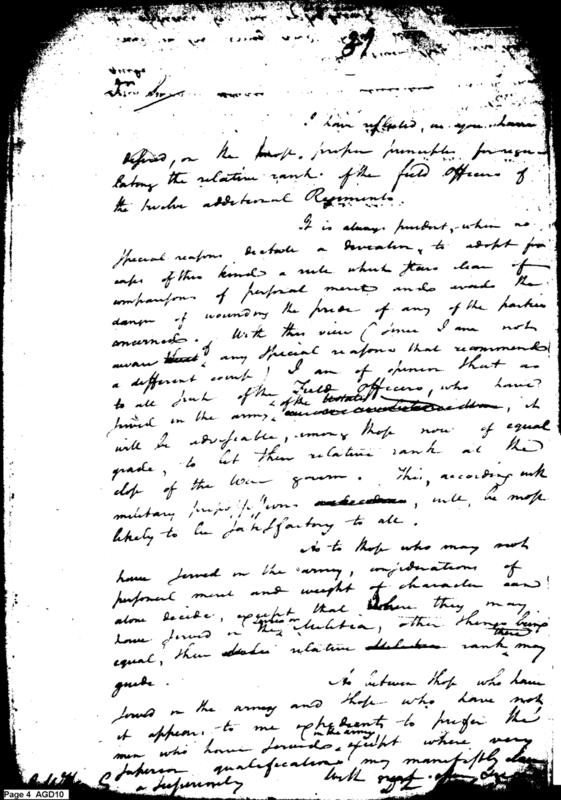 37
Dear Sir
I have reflected, as you have
desired, on the most proper principles for regu-
lating the relative rank of the field Officers of
the twelve additional Regiments.
It is always prudent, when no
special reasons dictate a deviation, to adopt for
cases of this kind a rule which steers clear of
comparisons of personal merit and avoids the
danger of wounding the pride of any of the parties
concerned. With this view (since I am not
aware of any special reasons that recommend
a different course) I am of opinion that as
to all such of the Field Officers, who have
served in the army of the United States, it
will be adviseable, among those now of equal
grade, to let their relative rank at the
close of the War govern. This, according with
military prepossessions, will be most
likely to be satisfactory to all.
As to those who may not
have served in the army, considerations of
personal merit and weight of character can
alone decide, except that where they may
have served in the Militia, other things being
equal, their relative rank there may
guide.
As between those who have
served in the army and those who have not
it appears to me expedient to prefer the
men who have served in the army except where very
superior qualifications may manifestly claim
a superiority
With
Page 4 AGD10